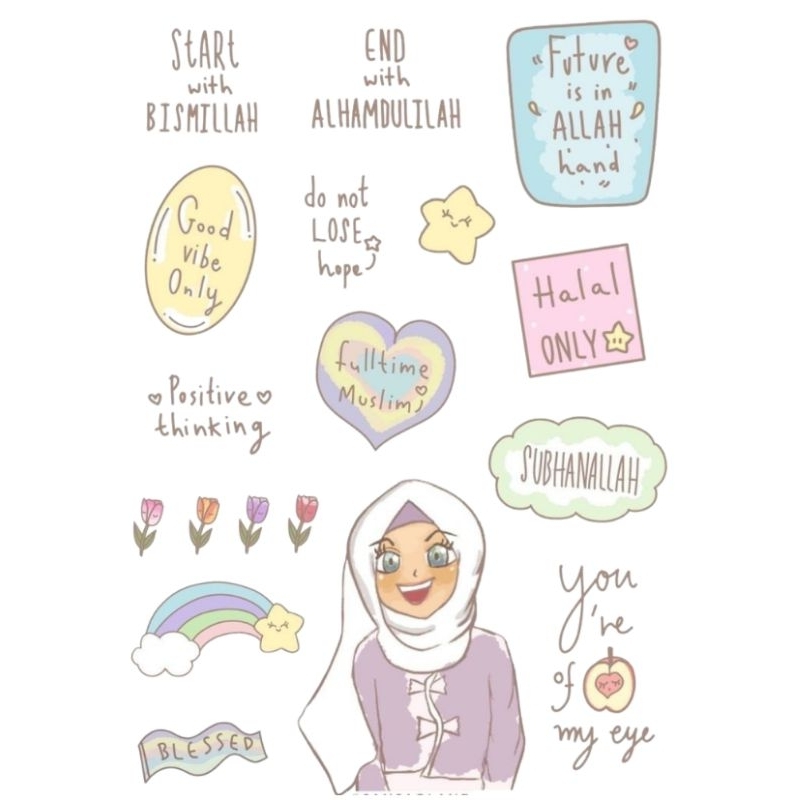 START
with
BISMILLAH
END
with
ALHAMDULILAH
"Future
is in"
ALLAH
hand
Good
vibe
Only
do not
LOSE
hope
Halal
ONLY
fulltime
Muslim
Positive
thinking
SUBHANALLAH
you
're
of
my eye
BLESSED